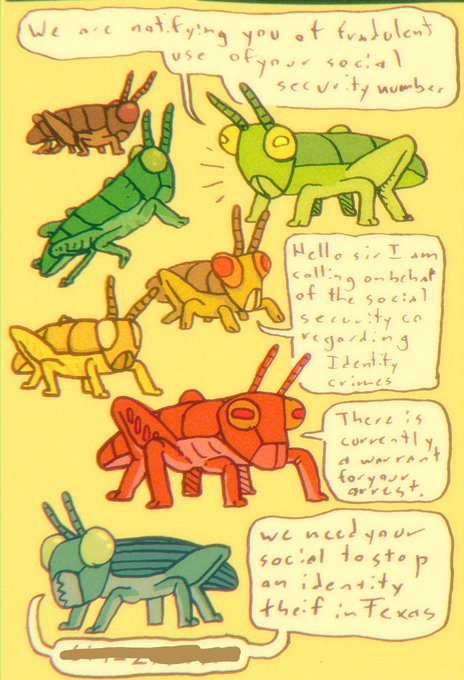 We are notifying you of fradulent
use of your social
security number
Hello sir I am
calling on behalf
of the social
security co
regarding
Identity
crimes
There is
currently
a warrant
for your
arrest.
we need your
social to stop
an identity
theif in Texas